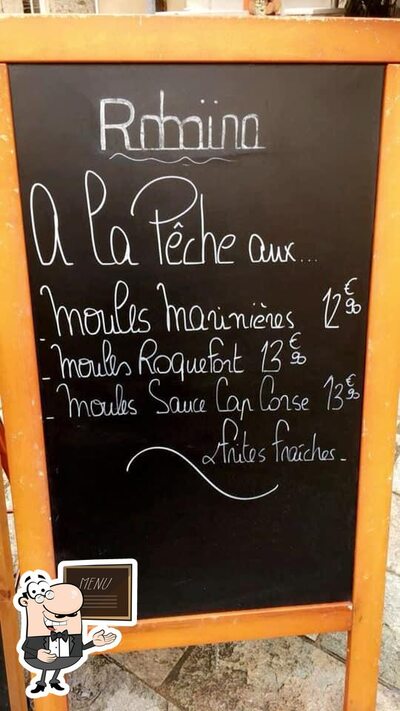 Robaïna
A la Pêche aux...
- Moules Marinières 12€90
- Moules Roquefort 13€90
- Moules Sauce Cap Corse 13€90
frites fraîches-
MENU